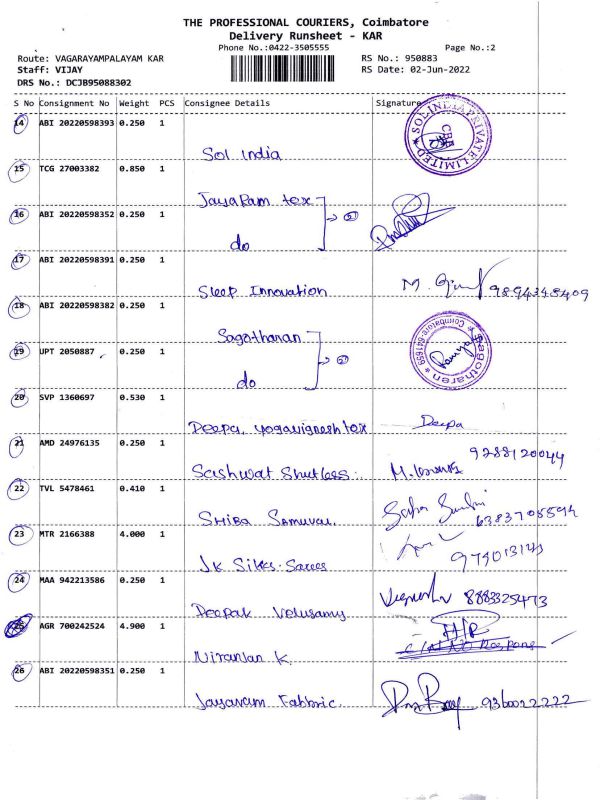 THE PROFESSIONAL COURIERS, Coimbatore
Delivery Runsheet - KAR
Phone No.:0422-3505555
Page No.:2
Route: VAGARAYAMPALAYAM KAR
RS No.: 950883
Staff: VIJAY
RS Date: 02-Jun-2022
DRS No.: DCJB95088302
S No Consignment No Weight PCS Consignee Details Signature
14 ABI 20220598393 0.250 1
SOL INDIA PRIVATE LIMITED
CBE
Sol India
15 TCG 27003382 0.850 1
JayaRam tex
16 ABI 20220598352 0.250 1
do
17 ABI 20220598391 0.250 1
Sleep Innovation M. 9894348409
18 ABI 20220598382 0.250 1
Sagotharan
Sagotharan * Coimbatore-641659 *
19 UPT 2050887 0.250 1
do
20 SVP 1360697 0.530 1
Deepa, yogavignesh tex Deepa
21 AMD 24976135 0.250 1
9288120044
Sashwat Shutless. M.
22 TVL 5478461 0.410 1
Shiba Samuval. 6383708594
23 MTR 2166388 4.000 1
JK Silks. Sarees
24 MAA 942213586 0.250 1
Deepak Velusamy Vignesh 8883325473
25 AGR 700242524 4.900 1
Niranjan K.
26 ABI 20220598351 0.250 1
Jayavam Fabbric. 9360022222